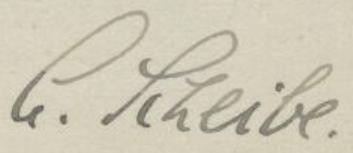 C. Scheibe.